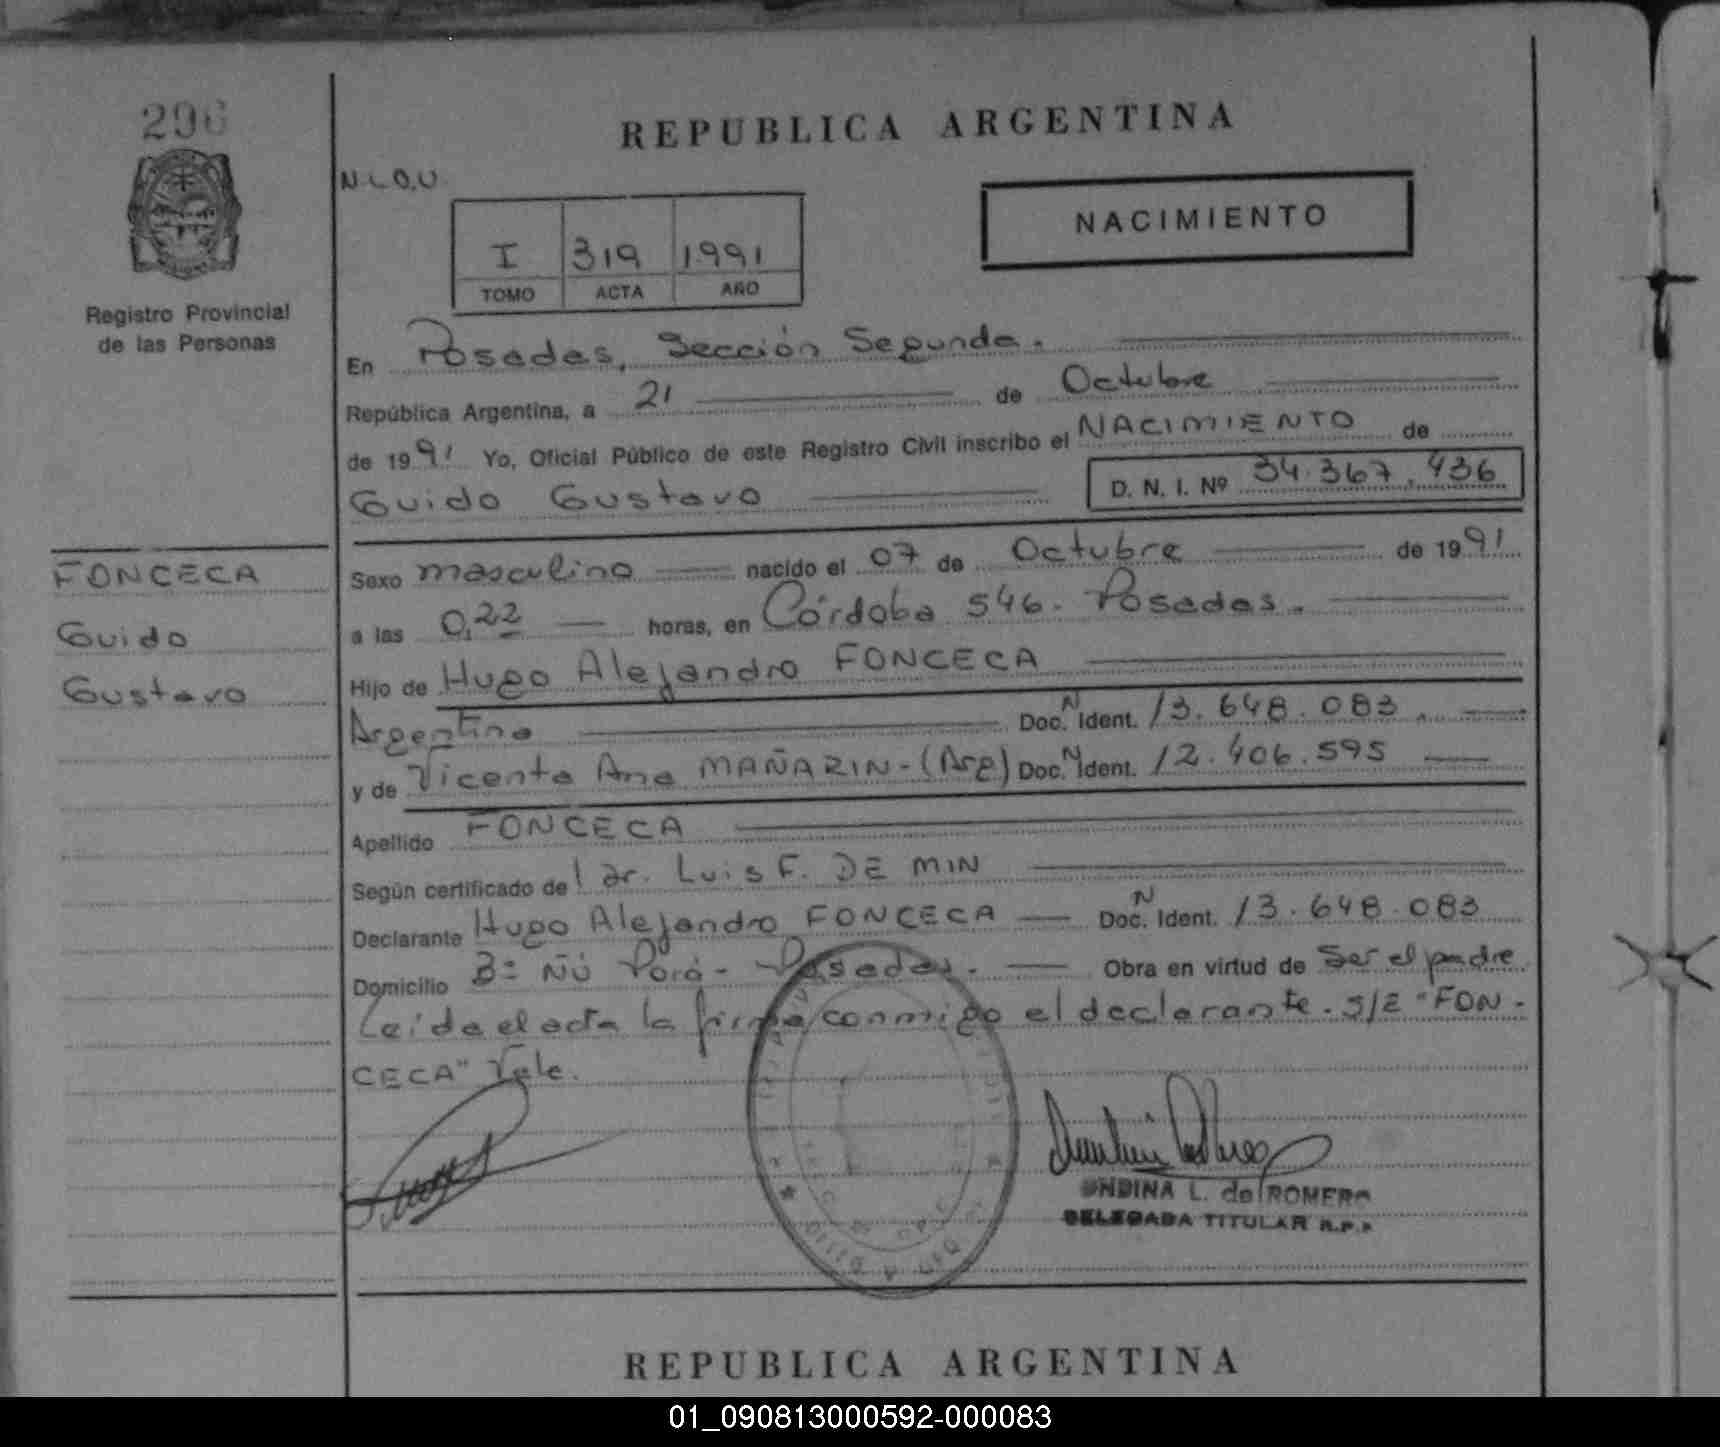 296
REPUBLICA ARGENTINA
N.L.O.U
NACIMIENTO
I 319 1991
TOMO ACTA AÑO
Registro Provincial
de las Personas
En Posadas, Sección Segunda.
República Argentina, a 21 de Octubre
de 1991 Yo, Oficial Público de este Registro Civil inscribo el NACIMIENTO de
Guido Gustavo D. N. I. Nº 34.367.436
FONCECA
Guido
Gustavo
Sexo masculino nacido el 07 de Octubre de 1991
a las 0,22 horas, en Córdoba 546. Posadas.
Hijo de Hugo Alejandro FONCECA
Argentino Doc. N Ident. 13.648.083.
y de Vicenta Ana MAÑARIN-(Arg) Doc. N Ident. 12.406.595
Apellido FONCECA
Según certificado del Dr. Luis F. DE MIN
Declarante Hugo Alejandro FONCECA Doc. N Ident. 13.648.083
Domicilio Bº ÑÚ Porá- Posadas. Obra en virtud de Ser el padre
Leída el acta la firma conmigo el declarante. S/E "FON-
CECA" Vale.
UNDINA L. de ROMERO
DELEGADA TITULAR R.P.P
REPUBLICA ARGENTINA
01_090813000592-000083